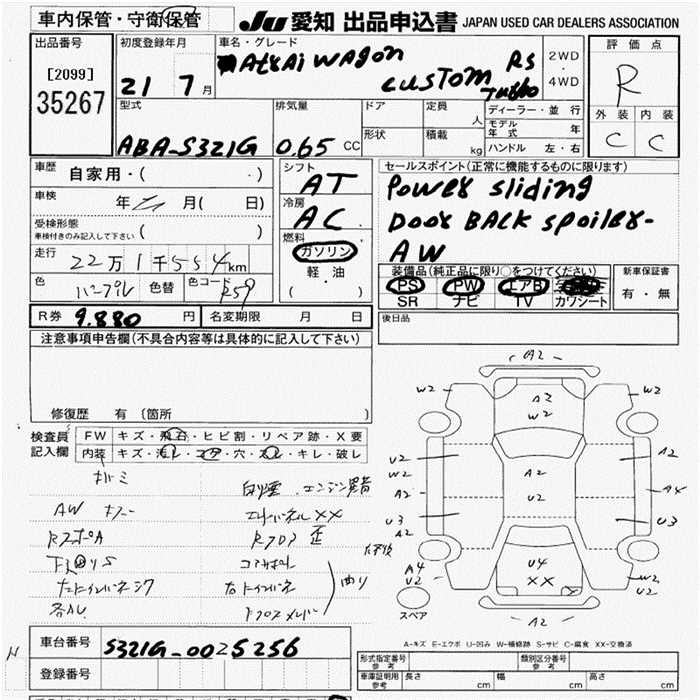 車内保管・守衛保管
JU 愛知 出品申込書 JAPAN USED CAR DEALERS ASSOCIATION
出品番号
[2099]
35267
初度登録年月
21 7月
車名・グレード
Atrai wagon RS
custom Turbo
2WD
・
4WD
評価点
R
外装 内装
C C
型式
ABA-S321G
排気量
0.65 CC
ドア
定員 人
形状
積載 kg
ディーラー・並行
モデル年式 年
ハンドル 左・右
車歴 自家用・( ・)
車検 年 月( 日)
受検形態
車検付きのみ記入して下さい ( )
走行 22万1千554km
色 パープル 色替 色コード R59
シフト
AT
冷房
AC
燃料
ガソリン
軽油
( ・ )
セールスポイント(正常に機能するものに限ります)
Power sliding
Door BACK spoiler-
AW
装備品(純正品に限り○をつけてください)
PS PW エアB
SR ナビ TV カワシート
新車保証書
有・無
R券 9.880 円 名変期限 月 日
後日品
注意事項申告欄(不具合内容等は具体的に記入して下さい)
修復歴 有(箇所 )
検査員記入欄
FW キズ・飛石・ヒビ割・リペア跡・X要
内装 キズ・汚レ・コゲ・穴・スレ・キレ・破レ
白煙・エンジン異音
AW キズー
エンドパネルXX
RスポA
Rフロア歪
コアサポ
右Fインパネ
曲り
各AU
Fクロスメンバー
A2
W2
A2
W2
W2
U2
W2
A2
U3
A2
A2
U2
U2
A2
A4
U3
A4
U2
U4
XX
W2
U2
A2
スペア
A-キズ E-エクボ U-凹み W-補修跡 S-サビ C-腐食 XX-交換済
車台番号 S321G-0025256
登録番号
形式指定番号 参考
類別区分番号 参考
車庫証明用 参考 長さ cm 幅 cm 高さ cm